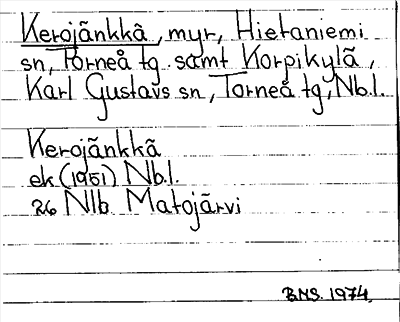 Kerojänkkä, myr, Hietaniemi
sn, Torneå tg. samt Korpikylä,
Karl Gustavs sn, Torneå tg, Nb.l.
Kerojänkkä
ek (1951) Nb.l.
26 Nlb Matojärvi
BMS. 1974.